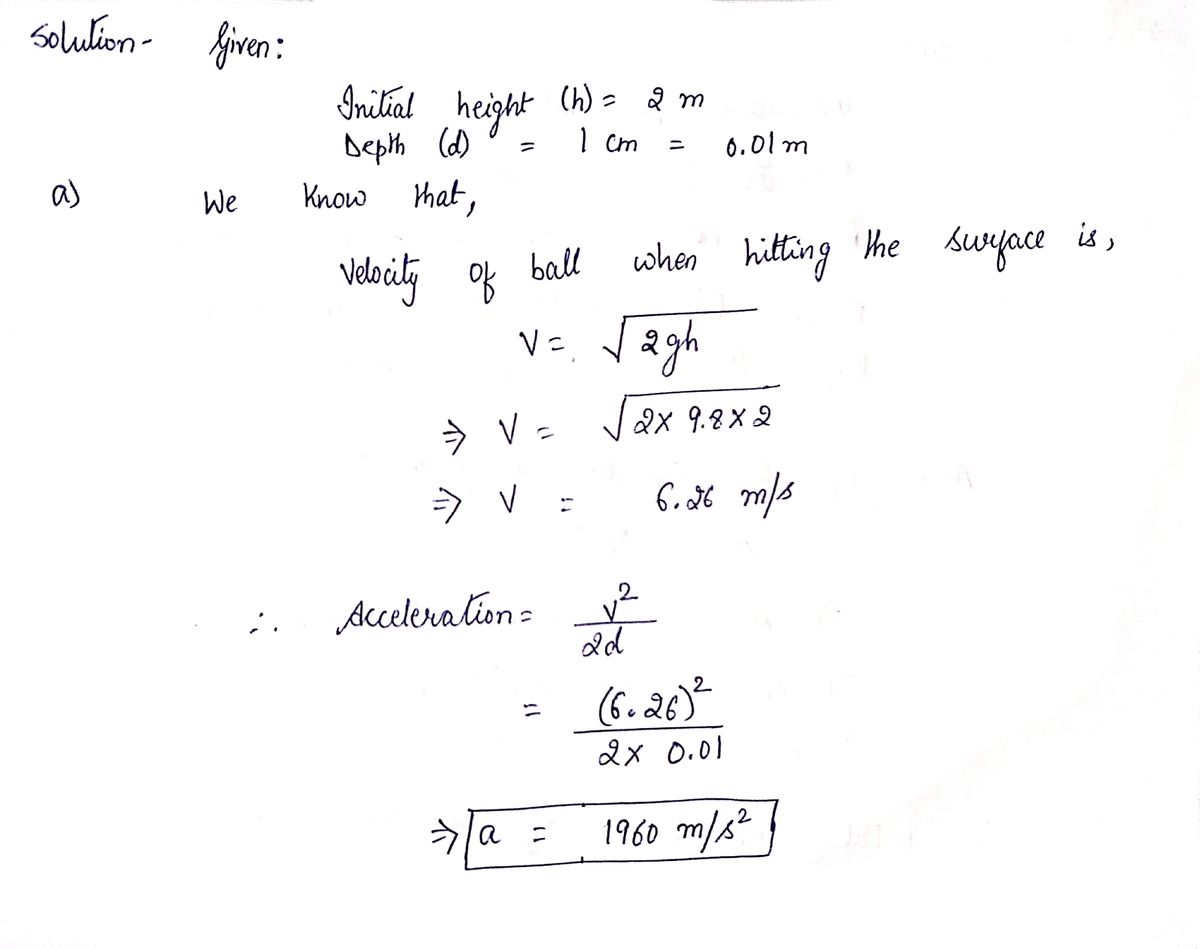 Solution- Given:
Initial height (h) = 2 m
Depth (d) = 1 cm = 0.01 m
a) We Know that,
Velocity of ball when hitting the surface is,
V = √2gh
⇒ V = √2× 9.8×2
⇒ V = 6.26 m/s
∴ Acceleration = V²/2d
= (6.26)²/2× 0.01
⇒ a = 1960 m/s²